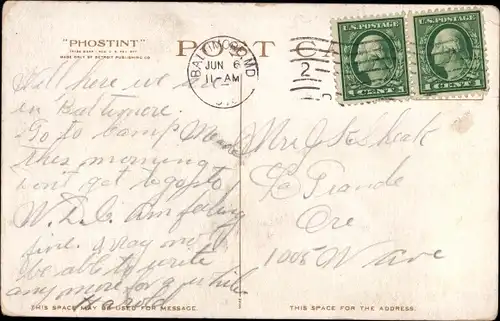 "PHOSTINT"
MADE ONLY BY DETROIT PUBLISHING CO.
POST CA
BALTIMORE, MD.
JUN 6
11 - AM
2
U.S. POSTAGE
1 CENT 1
U.S. POSTAGE
1 CENT 1
Well here we are
in Baltimore.
Go to Camp Meade
this morning
wont get to go to
W. D.C. am feeling
fine. I may not
be able to write
any more for a while
Harold
Mrs J S
La Grande
Ore
1005 N ave
THIS SPACE MAY BE USED FOR MESSAGE.
THIS SPACE FOR THE ADDRESS.